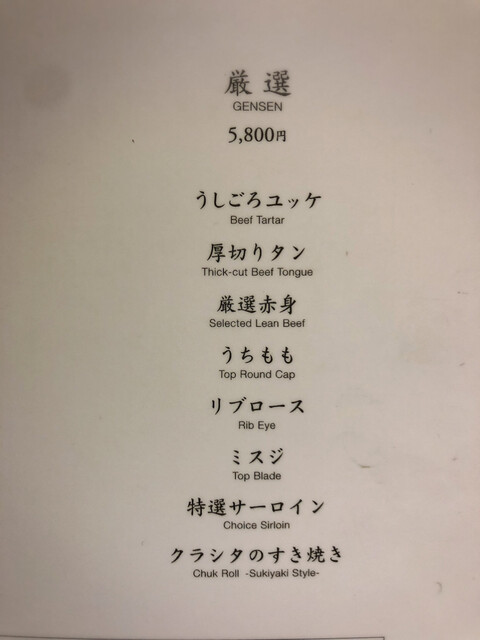 厳選
GENSEN
5,800円
うしごろユッケ
Beef Tartar
厚切りタン
Thick-cut Beef Tongue
厳選赤身
Selected Lean Beef
うちもも
Top Round Cap
リブロース
Rib Eye
ミスジ
Top Blade
特選サーロイン
Choice Sirloin
クラシタのすき焼き
Chuk Roll -Sukiyaki Style-